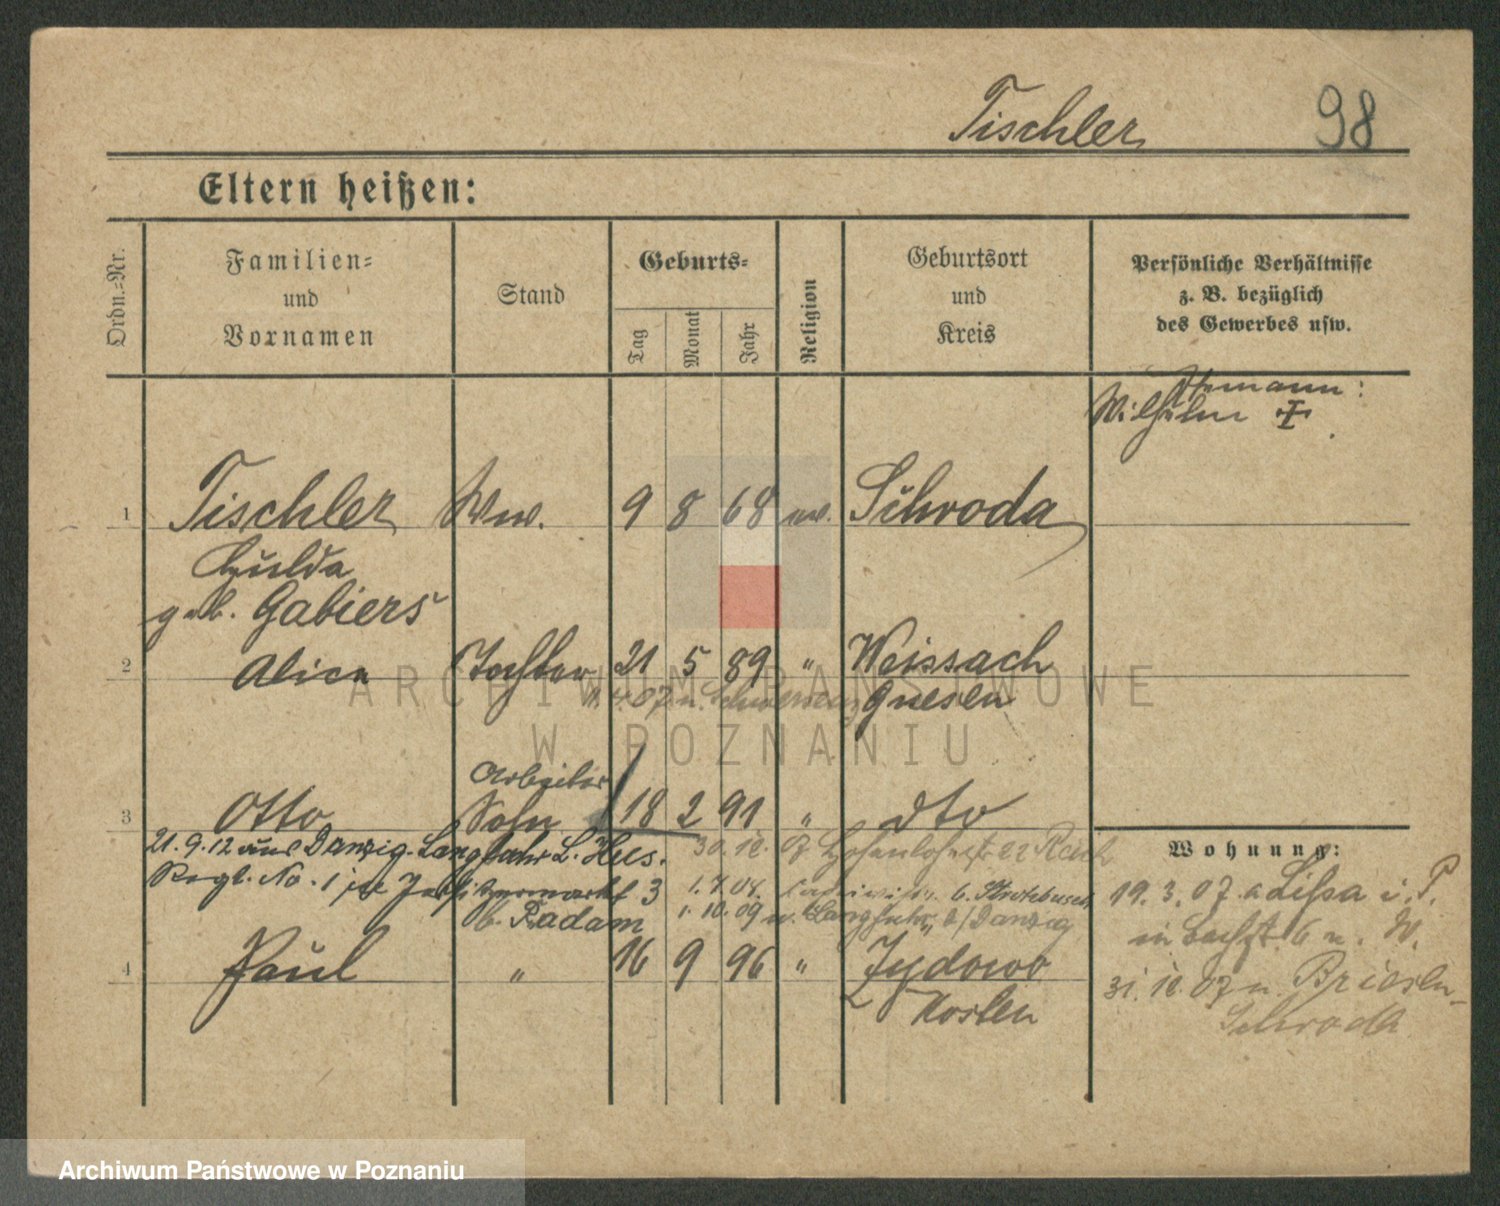 Tischler 98
Eltern heißen:
Ordn.-Nr.
Familien-
und
Vornamen
Stand
Geburts-
Tag
Monat
Jahr
Religion
Geburtsort
und
Kreis
Persönliche Verhältnisse
z. B. bezüglich
des Gewerbes usw.
Ehemann:
Wilhelm
1 Tischler Ww. 9 8 68 ev. Schroda
Hulda
geb. Gabiers
2 Alice Tochter 21 5 89 " Weissach
4.07 n. Schwersenz Gnesen
Arbeiter
3 Otto Sohn 18 2 91 " dto
21.9.12 aus Danzig-Langfuhr L. Hus.
Regt. No. 1 in 3
b. Radam
30.12.07 Hohenlohestr 22
1.7.08.
1.10.09 n. Langfuhr b/Danzig
4 Paul " 16 9 96 " Zydowo
Kosten
Wohnung:
19.3.07 a Lissa i. P.
in 6 n. W.
31.12.07 n. Briesen-
Schroda
ARCHIWUM PAŃSTWOWE
W POZNANIU
Archiwum Państwowe w Poznaniu